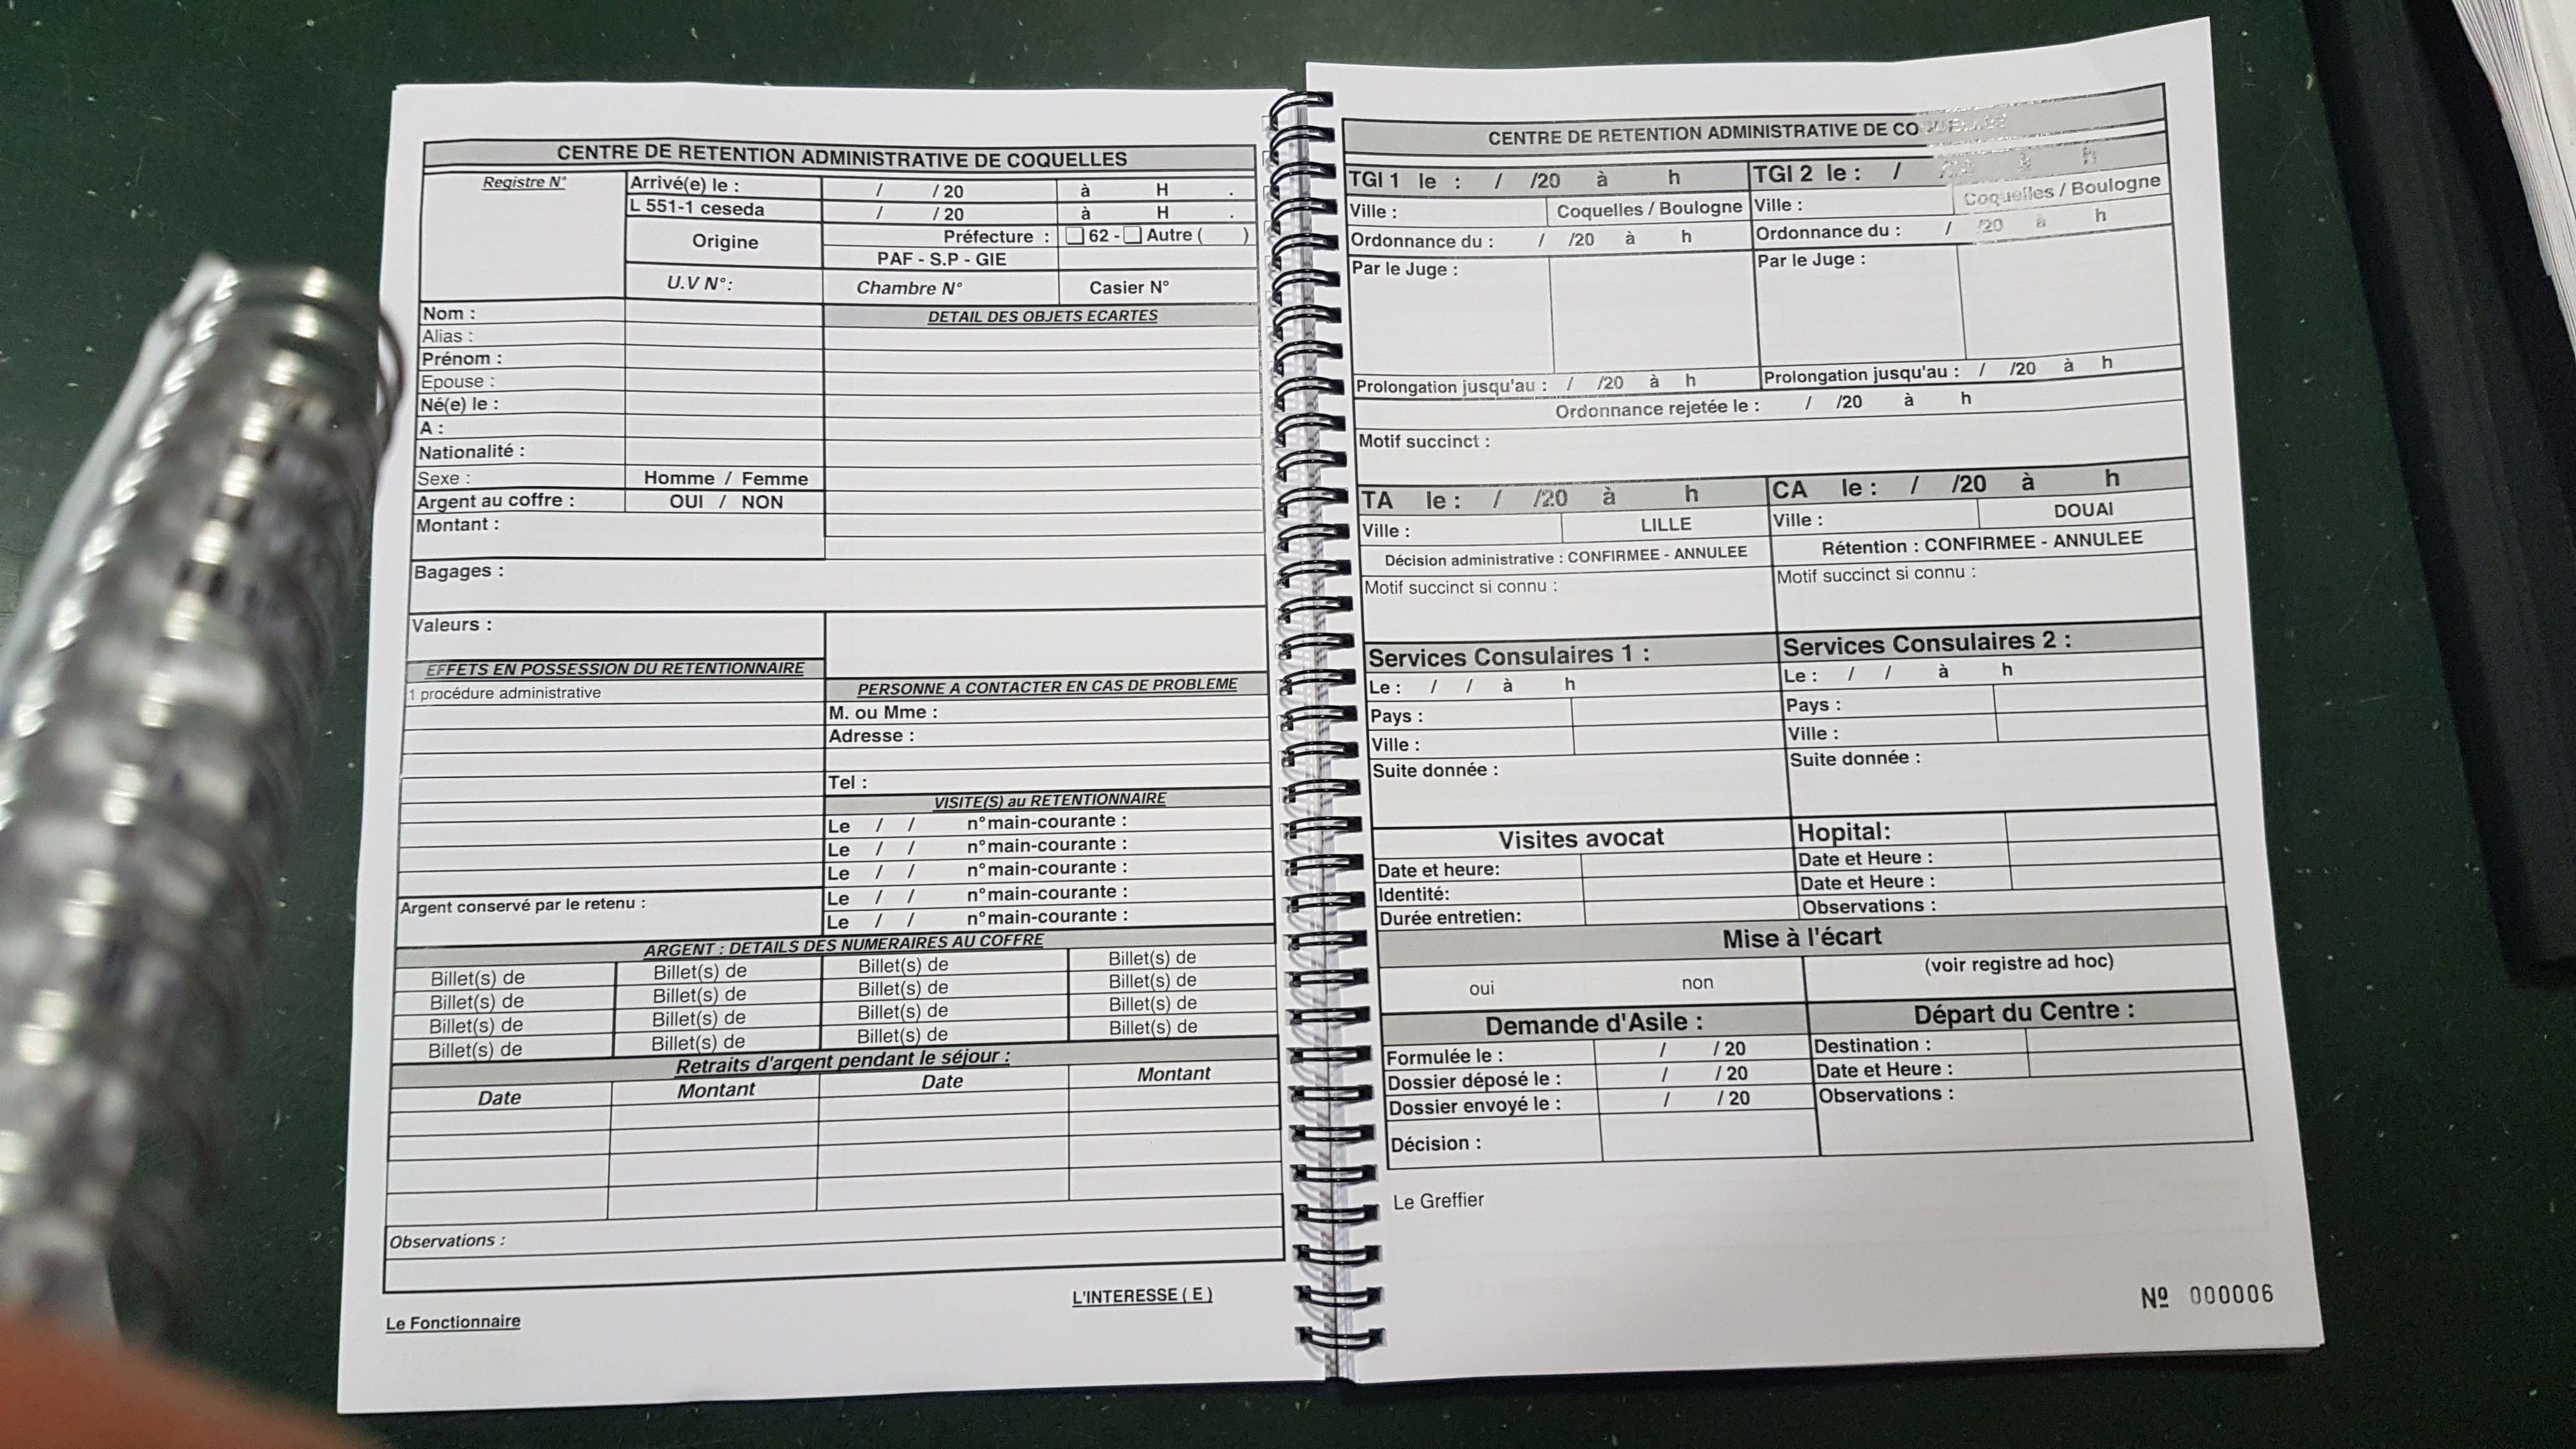 CENTRE DE RETENTION ADMINISTRATIVE DE COQUELLES
Registre N°
Arrivé(e) le : / / 20 à H .
L 551-1 ceseda / / 20 à H .
Origine
Préfecture : 62 - Autre ( )
PAF - S.P - GIE
U.V N°: Chambre N° Casier N°
Nom :
DETAIL DES OBJETS ECARTES
Alias :
Prénom :
Epouse :
Né(e) le :
A :
Nationalité :
Sexe : Homme / Femme
Argent au coffre : OUI / NON
Montant :
Bagages :
Valeurs :
EFFETS EN POSSESSION DU RETENTIONNAIRE
1 procédure administrative
PERSONNE A CONTACTER EN CAS DE PROBLEME
M. ou Mme :
Adresse :
Tel :
VISITE(S) au RETENTIONNAIRE
Le / / n°main-courante :
Le / / n°main-courante :
Le / / n°main-courante :
Le / / n°main-courante :
Le / / n°main-courante :
Argent conservé par le retenu :
ARGENT : DETAILS DES NUMERAIRES AU COFFRE
Billet(s) de Billet(s) de Billet(s) de Billet(s) de
Billet(s) de Billet(s) de Billet(s) de Billet(s) de
Billet(s) de Billet(s) de Billet(s) de Billet(s) de
Billet(s) de Billet(s) de Billet(s) de Billet(s) de
Retraits d'argent pendant le séjour :
Date Montant Date Montant
Observations :
L'INTERESSE ( E )
Le Fonctionnaire
CENTRE DE RETENTION ADMINISTRATIVE DE CO
TGI 1 le : / /20 à h
TGI 2 le : / à h
Ville : Coquelles / Boulogne
Ville : Coquelles / Boulogne
Ordonnance du : / /20 à h
Ordonnance du : / /20 à h
Par le Juge :
Par le Juge :
Prolongation jusqu'au : / /20 à h
Prolongation jusqu'au : / /20 à h
Ordonnance rejetée le : / /20 à h
Motif succinct :
TA le : / /20 à h
CA le : / /20 à h
Ville : LILLE
Ville : DOUAI
Décision administrative : CONFIRMEE - ANNULEE
Rétention : CONFIRMEE - ANNULEE
Motif succinct si connu :
Motif succinct si connu :
Services Consulaires 1 :
Services Consulaires 2 :
Le : / / à h
Le : / / à h
Pays :
Pays :
Ville :
Ville :
Suite donnée :
Suite donnée :
Visites avocat
Hopital:
Date et heure:
Date et Heure :
Identité:
Date et Heure :
Durée entretien:
Observations :
Mise à l'écart
oui non
(voir registre ad hoc)
Demande d'Asile :
Départ du Centre :
Formulée le : / / 20
Destination :
Dossier déposé le : / / 20
Date et Heure :
Dossier envoyé le : / / 20
Observations :
Décision :
Le Greffier
Nº 000006